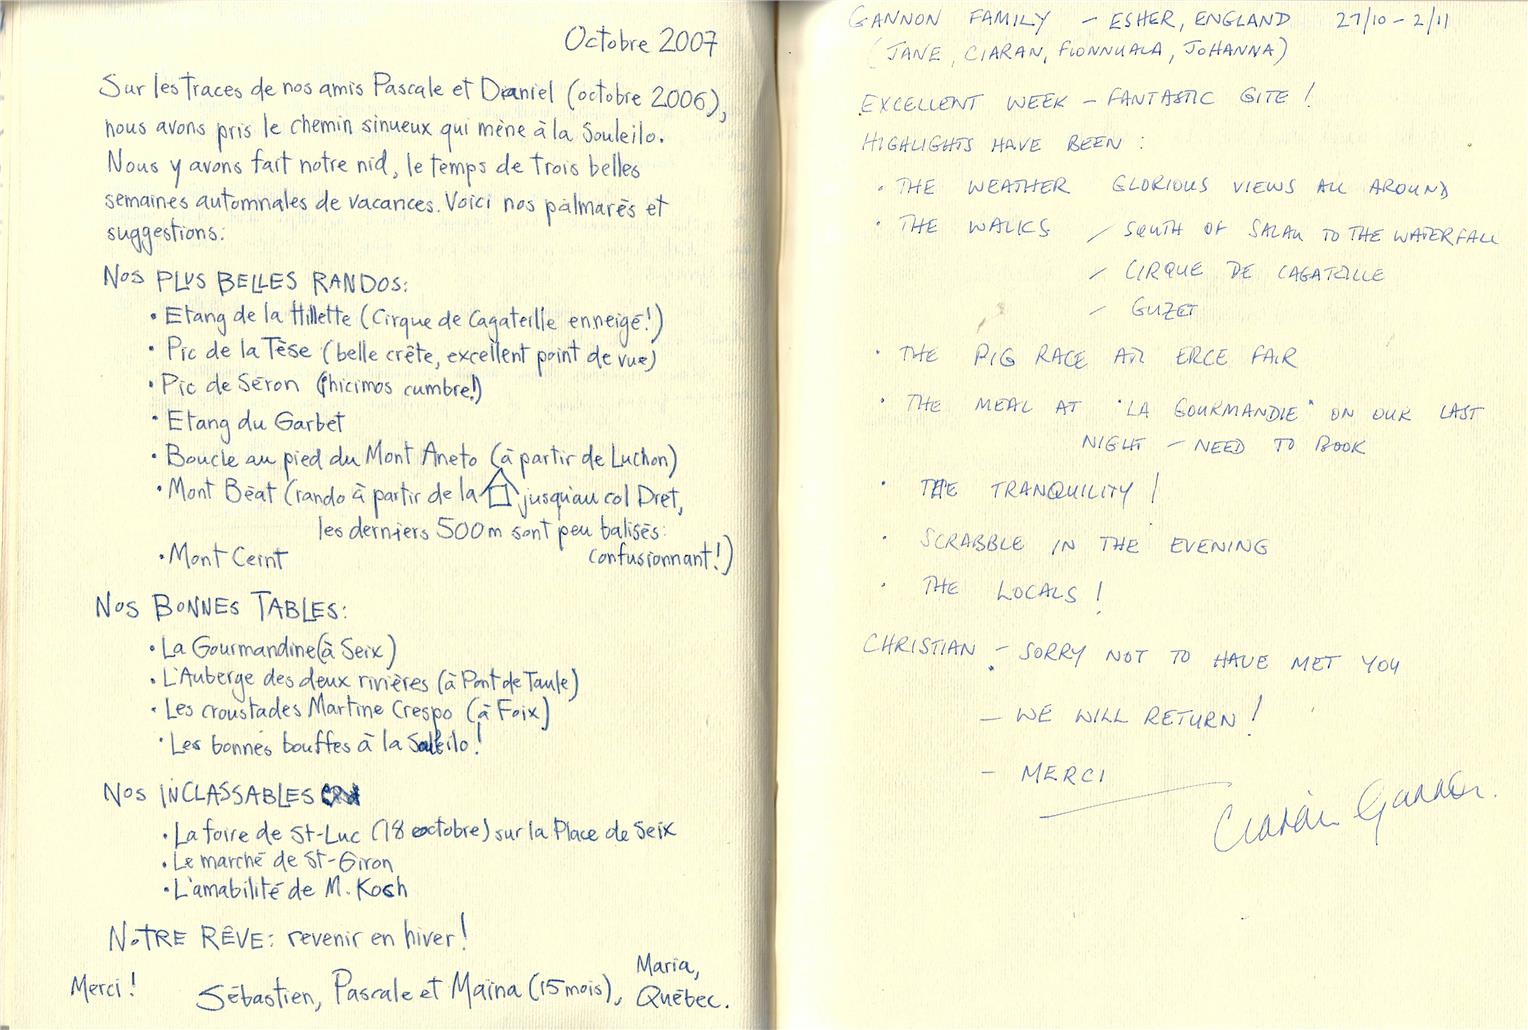 Octobre 2007
Sur les traces de nos amis Pascale et Daniel (octobre 2006),
nous avons pris le chemin sinueux qui mène à la Souleilo.
Nous y avons fait notre nid, le temps de trois belles
semaines automnales de vacances. Voici nos palmarès et
suggestions:
NOS PLUS BELLES RANDOS:
• Etang de la Hillette (Cirque de Cagateille enneigé!)
• Pic de la Tèse (belle crête, excellent point de vue)
• Pic de Séron (¡hicimos cumbre!)
• Etang du Garbet
• Boucle au pied du Mont Aneto (à partir de Luchon)
• Mont Béat (rando à partir de la jusqu'au col Dret,
les derniers 500m sont peu balisés:
confusionnant!)
• Mont Ceint
NOS BONNES TABLES:
• La Gourmandine (à Seix)
• L'Auberge des deux rivières (à Pont de Taule)
• Les croustades Martine Crespo (à Foix)
• Les bonnes bouffes à la Souleilo!
NOS INCLASSABLES
• La foire de St-Luc (18 octobre) sur la Place de Seix
• Le marché de St-Giron
• L'amabilité de M. Kosh
NOTRE RÊVE: revenir en hiver!
Merci! Sébastien, Pascale et Maïna (15 mois), Maria,
Québec.
GANNON FAMILY - ESHER, ENGLAND 27/10 - 2/11
(JANE, CIARAN, FIONNUALA, JOHANNA)
EXCELLENT WEEK - FANTASTIC GITE!
HIGHLIGHTS HAVE BEEN:
• THE WEATHER GLORIOUS VIEWS ALL AROUND
• THE WALKS / SOUTH OF SALAU TO THE WATERFALL
/ CIRQUE DE CAGATEILLE
/ GUZET
• THE PIG RACE AT ERCE FAIR
• THE MEAL AT "LA GOURMANDIE" ON OUR LAST
NIGHT - NEED TO BOOK
• THE TRANQUILITY!
• SCRABBLE IN THE EVENING
• THE LOCALS!
CHRISTIAN - SORRY NOT TO HAVE MET YOU
- WE WILL RETURN!
- MERCI
Ciarán Gannon.